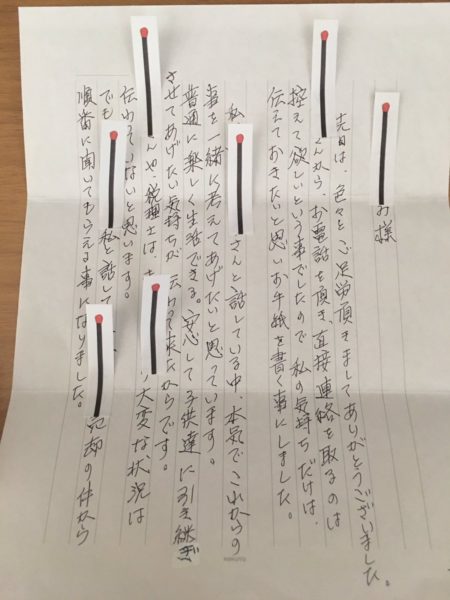 様
先日は、色々とご足労頂きましてありがとうございました。
くんから、お電話を頂き直接連絡を取るのは
控えて欲しいという事でしたので私の気持ちだけは、
伝えておきたいと思いお手紙を書く事にしました。
私 さんと話している中、本気でこれからの
事を一緒に考えてあげたいと思っています。
普通に楽しく生活できる。安心して子供達に引き継ぎ
させてあげたい気持ちが 伝わって来たからです。
んや、税理士は、 り大変な状況は
伝わっていないと思います。
でも 私と話して 売却の件から
順番に聞いてもらえる事になりました。
KOKUYO